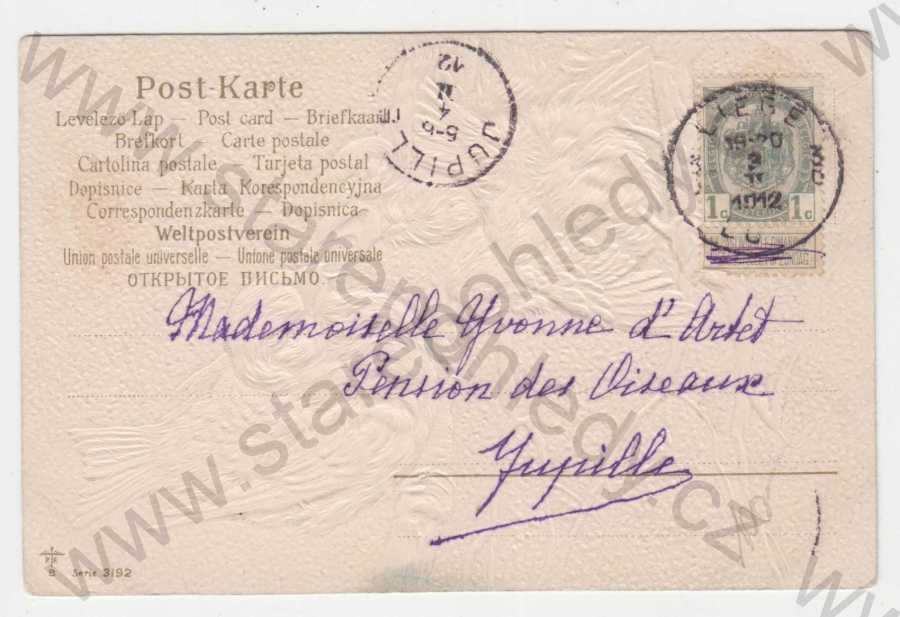 Post-Karte
Levelező-Lap — Post card — Briefkaart
Brefkort Carte postale
Cartolina postale — Tarjeta postal
Dopisnice — Karta Korespondencyjna
Correspondenzkarte — Dopisnica
Weltpostverein
Union postale universelle — Unione postale universale
ОТКРЫТОЕ ПИСЬМО.
JUPILLE
5-6
4
12
LIEGE
19-20
1912
1c 1c
Mademoiselle Yvonne d'Artet
Pension des Oiseaux
Jupille
B Serie 3192
www.starepohledy.cz